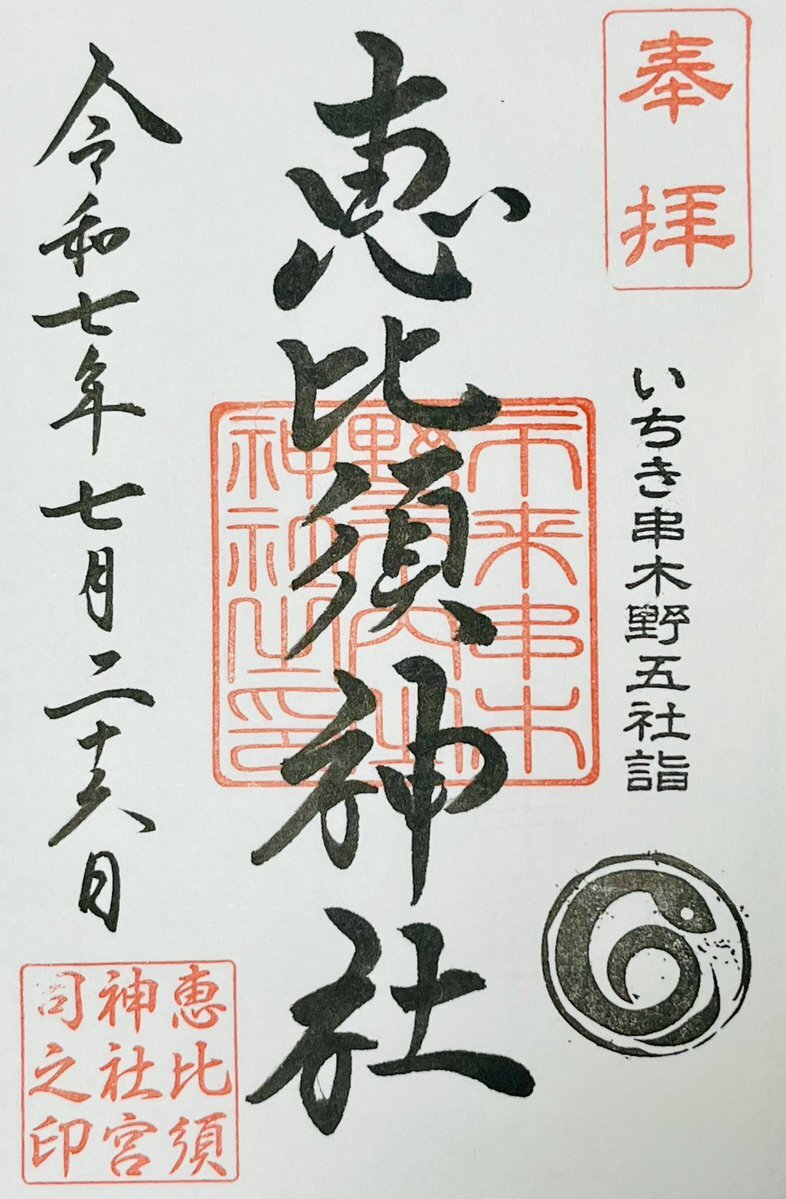 奉拝
いちき串木野五社詣
恵比須神社
市来串木
野
神社之印
令和七年七月二十六日
恵比須
神社宮
司之印